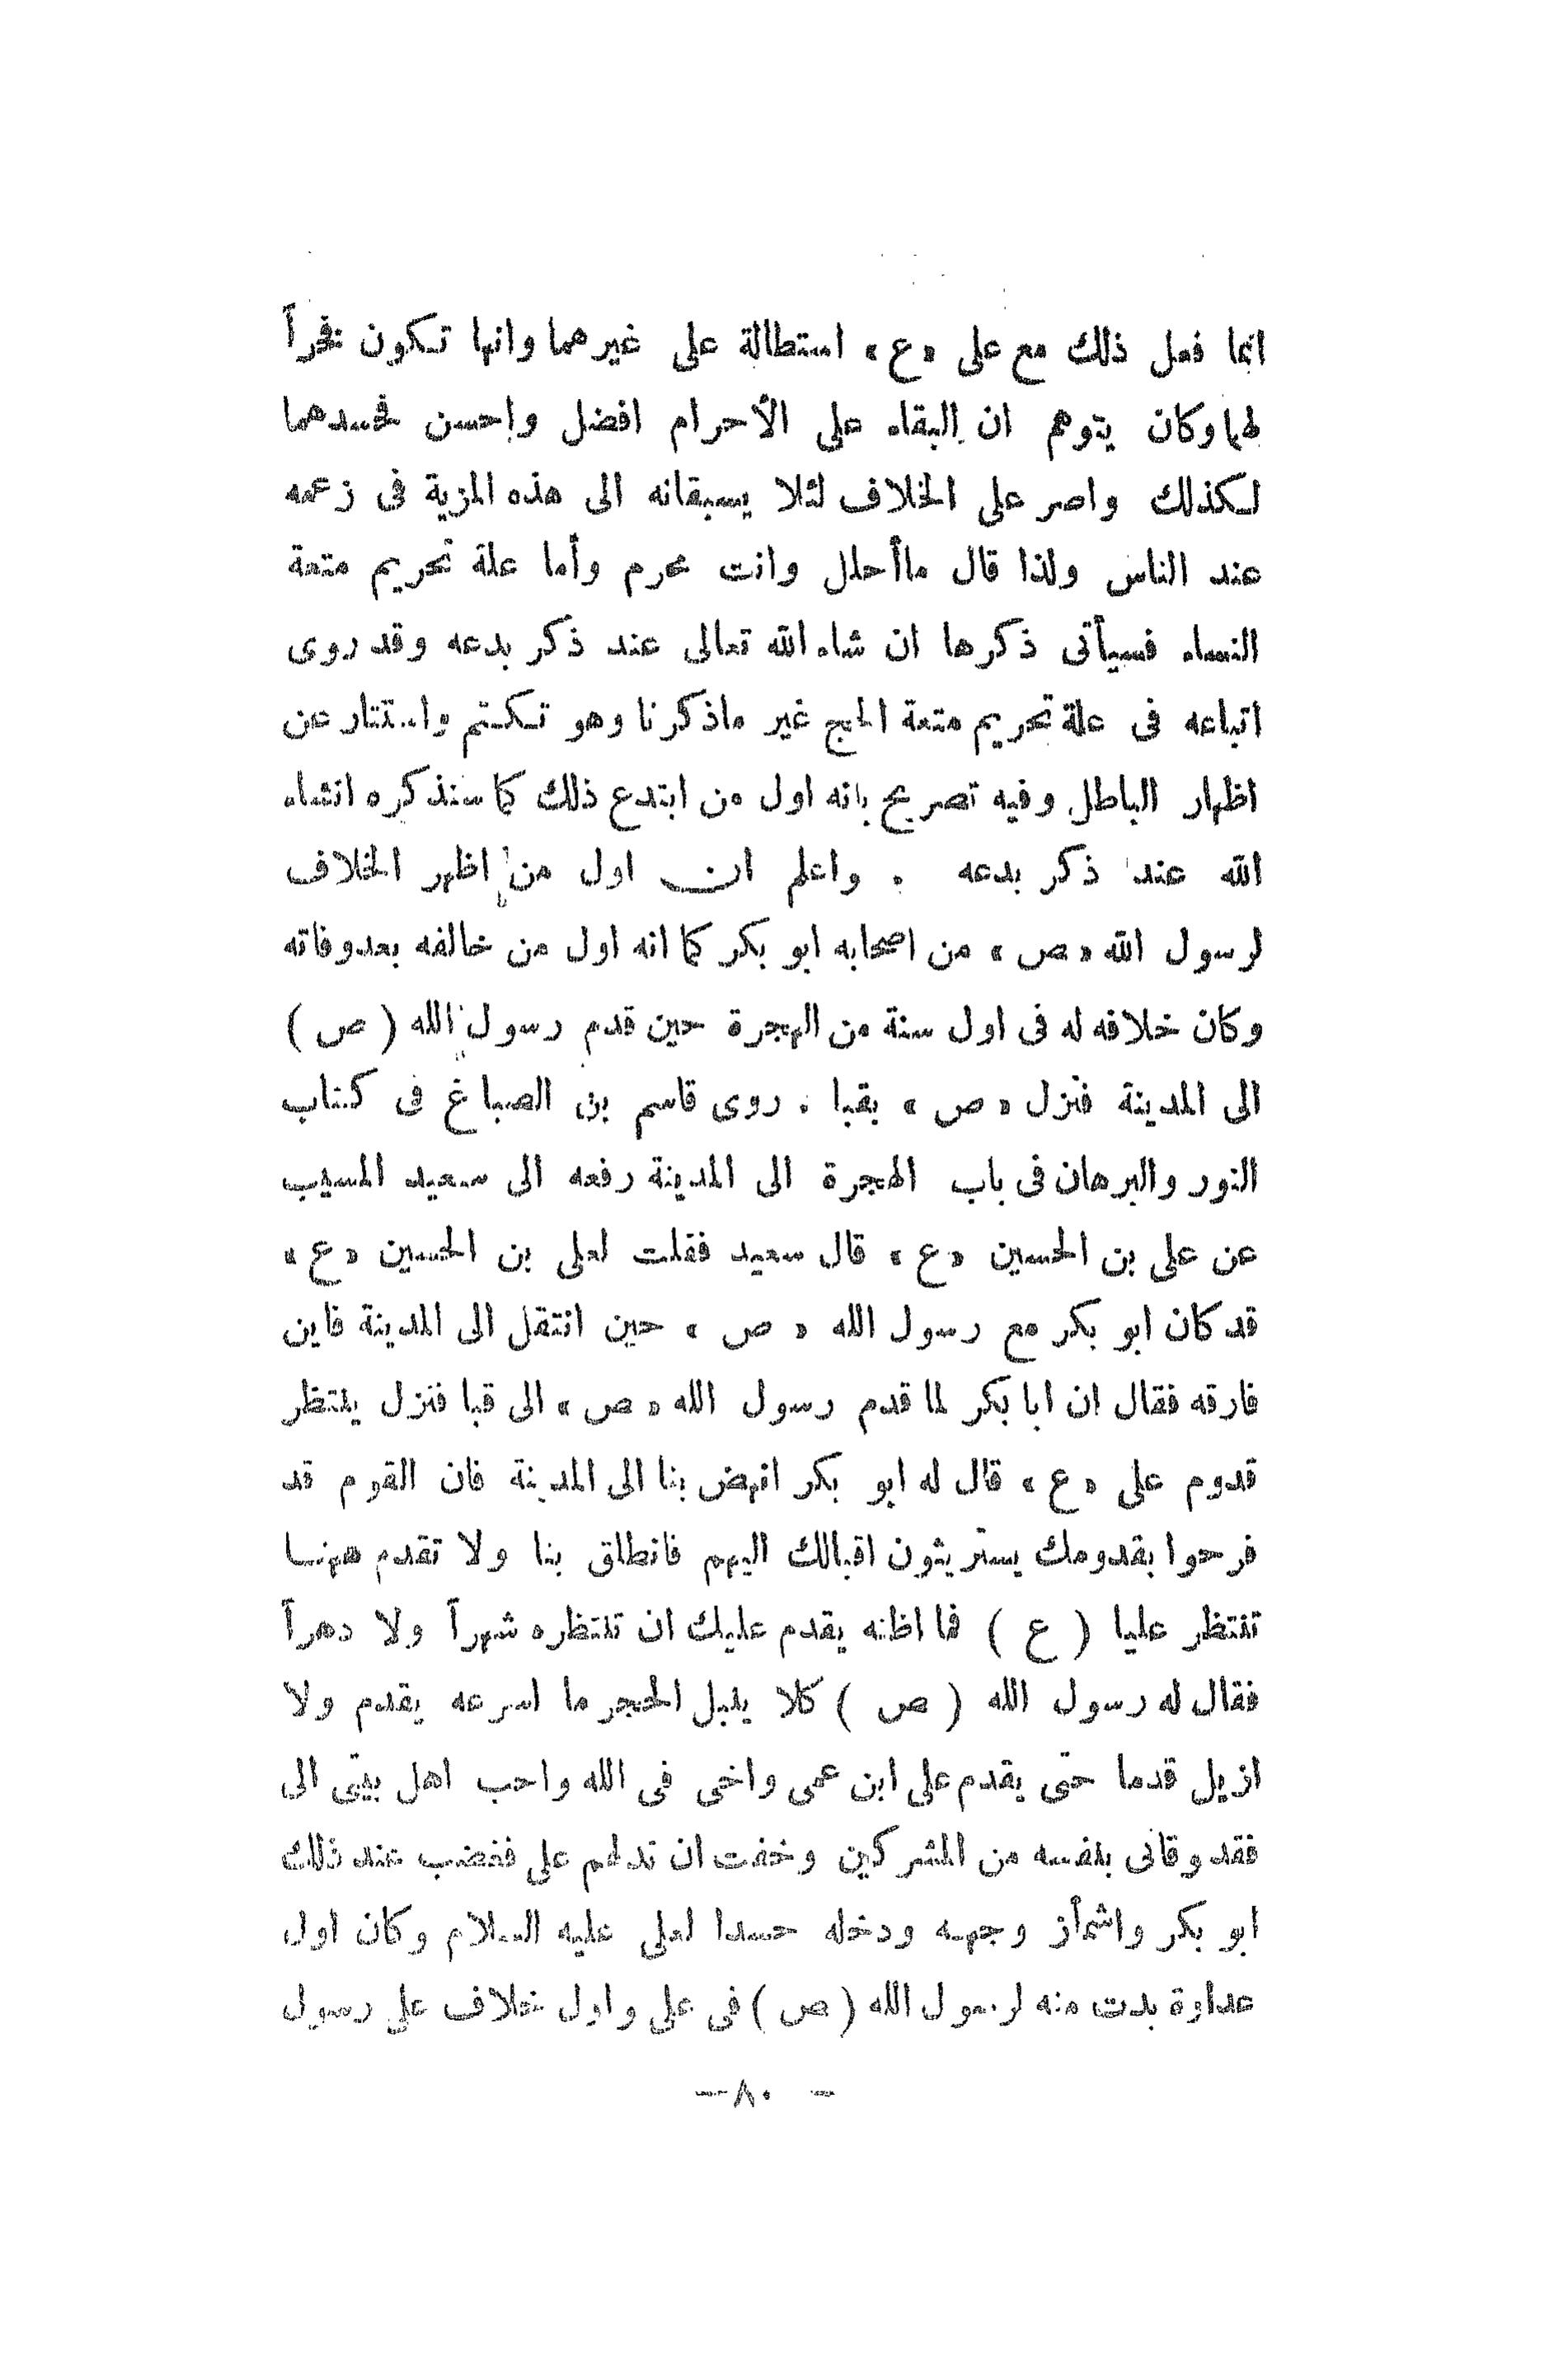 انما فعل ذلك مع على «ع» استطالة على غيرهما وانها تكون فخراً
لهما وكان يتوهم ان البقاء على الأحرام افضل واحسن فحسدهما
لكذلك واصر على الخلاف لئلا يسبقانه الى هذه المزية فى زعمه
عند الناس ولذا قال ماأحلل وانت محرم وأما علة تحريم متعة
النساء فسيأتى ذكرها ان شاء الله تعالى عند ذكر بدعه وقد روى
اتباعه فى علة تحريم متعة الحج غير ماذكرنا وهو تكتم واستتار عن
اظهار الباطل وفيه تصريح بانه اول من ابتدع ذلك كما سنذكره انشاء
الله عند ذكر بدعه . واعلم ان اول من اظهر الخلاف
لرسول الله «ص» من اصحابه ابو بكر كما انه اول من خالفه بعدوفاته
وكان خلافه له فى اول سنة من الهجرة حين قدم رسول الله ( ص )
الى المدينة فنزل «ص» بقبا . روى قاسم بن الصباغ فى كتاب
النور والبرهان فى باب الهجرة الى المدينة رفعه الى سعيد المسيب
عن على بن الحسين «ع» قال سعيد فقلت لعلى بن الحسين «ع»
قد كان ابو بكر مع رسول الله «ص» حين انتقل الى المدينة فاين
فارقه فقال ان ابا بكر لما قدم رسول الله «ص» الى قبا فنزل ينتظر
قدوم على «ع» قال له ابو بكر انهض بنا الى المدينة فان القوم قد
فرحوا بقدومك يستريثون اقبالك اليهم فانطلق بنا ولا تقدم ههنا
تنتظر عليا ( ع ) فما اظنه يقدم عليك ان تنتظره شهراً ولا دهراً
فقال له رسول الله ( ص ) كلا ينبل الحجر ما اسرعه يقدم ولا
ازيل قدما حتى يقدم على ابن عمى واخى فى الله واحب اهل بيتى الى
فقد وقانى بنفسه من المشركين وخفت ان تدلهم على فغضب عند ذلك
ابو بكر واشمأز وجهه ودخله حسدا لعلى عليه السلام وكان اول
عداوة بدت منه لرسول الله ( ص ) فى على واول خلاف على رسول
— ٨٠ —